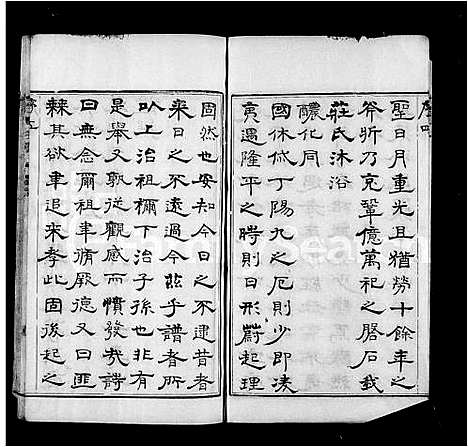 聖日月重光且猶勞十餘年之
斧斨乃克鞏億萬祀之磐石我
莊氏沐浴
醲化同
國休戚丁陽九之厄則少即淩
夷遇隆平之時則日形蔚起理
固然也安知今日之不逮昔者
來日之不遠過今茲乎譜者所
以上治祖禰下治子孫也非有
是舉又孰從觀感而憤發哉詩
曰無念爾祖聿脩厥德又曰匪
棘其欲聿追來孝此固後起之